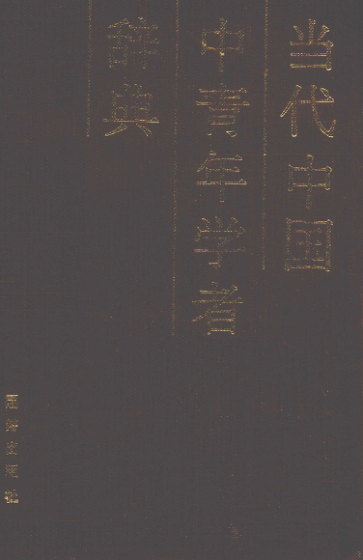 当代中国
中青年学者
辞典